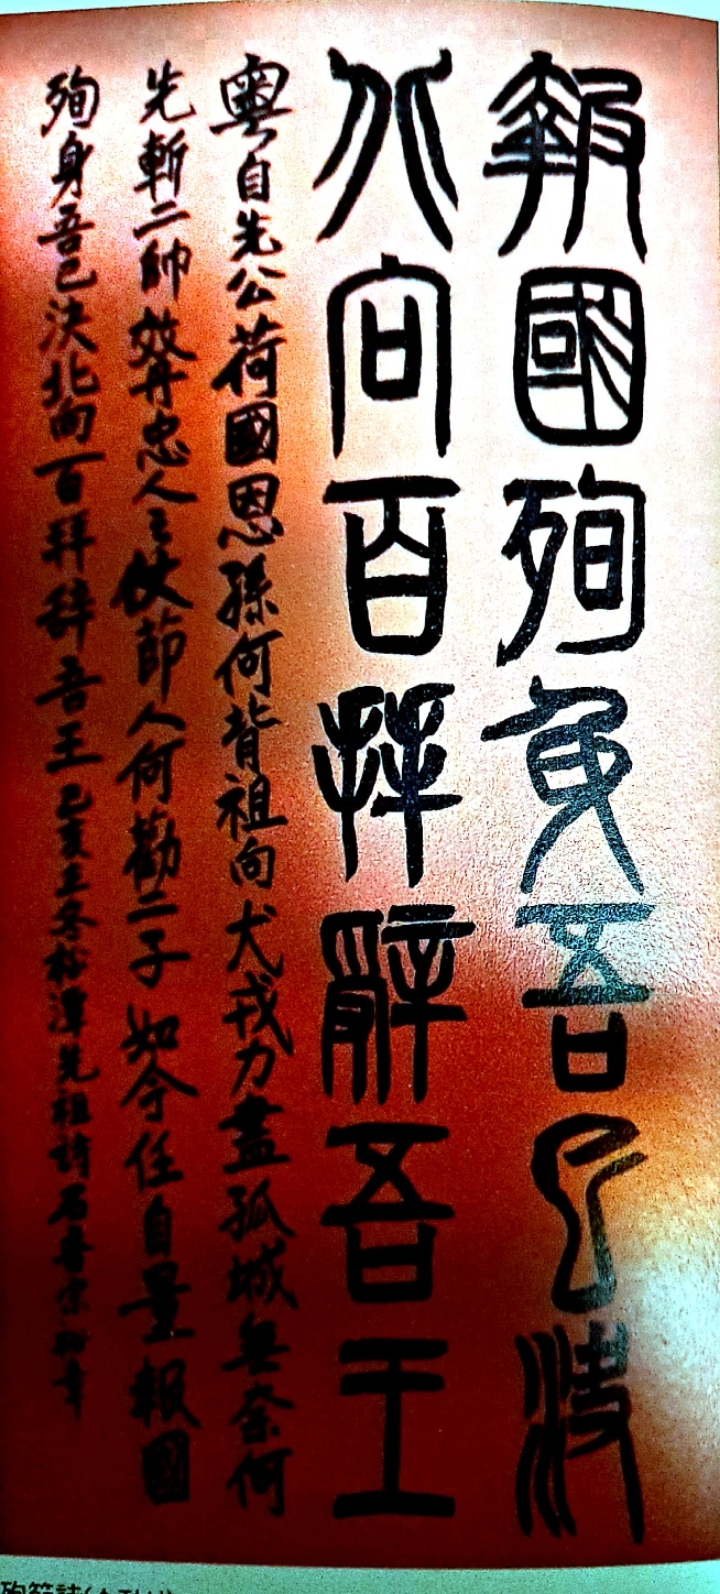 報國殉身吾已決
北向百拜辭吾王
粤自先公荷國恩孫何背祖向犬戎力盡孤城無奈何
先斬二帥效丹忠人之伏節人何勸二子如今任自量報國
殉身吾已決北向百拜辭吾王己亥立冬裕潭先祖詩石